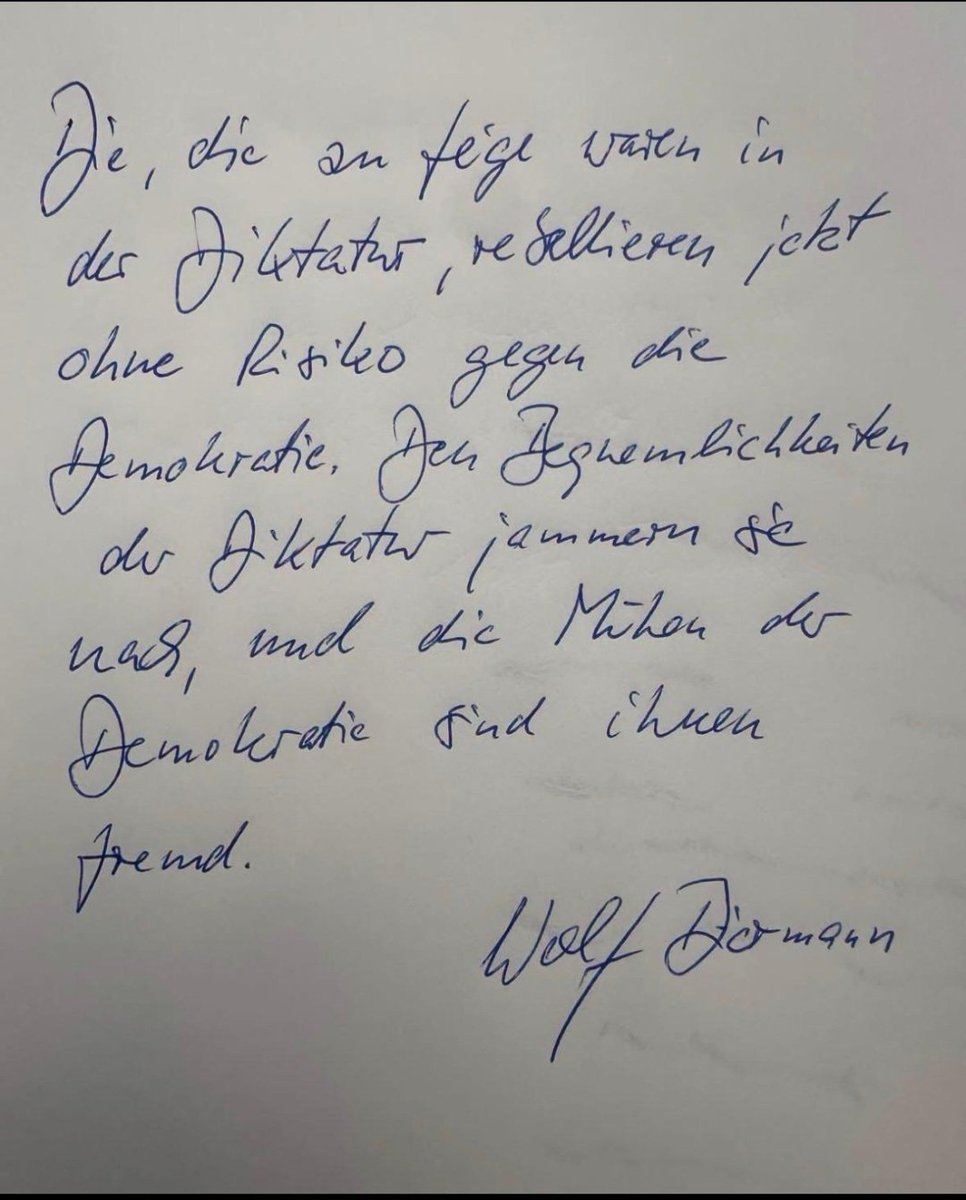 Die, die zu feige waren in
der Diktatur, rebellieren jetzt
ohne Risiko gegen die
Demokratie. Den Bequemlichkeiten
der Diktatur jammern sie
nach, und die Mühen der
Demokratie sind ihnen
fremd.
Wolf Biermann